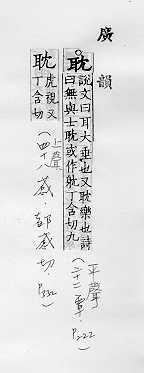 廣
韻
耽
說文曰耳大垂也又耽樂也詩
曰無與士耽或作躭丁含切九
平聲
(二十二覃.P222)
耽
虎視又
丁含切
上聲
(四十八感.都感切.P332)